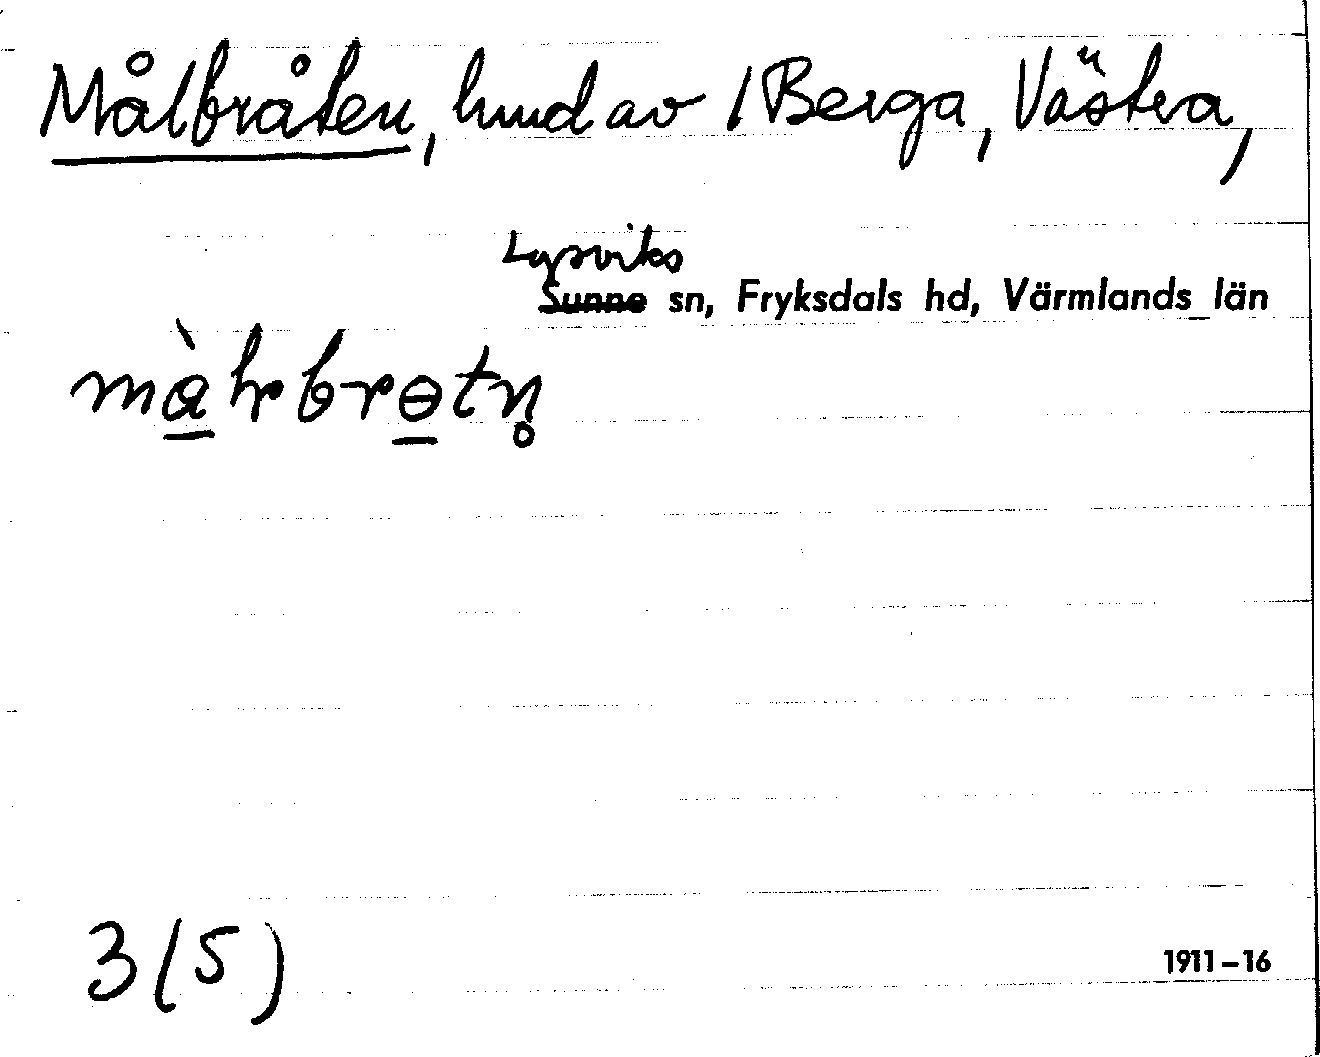 Målbråten, hmd av /Berga, Västra,
Lysviks
Sunne sn, Fryksdals hd, Värmlands län
3(5)
1911-16